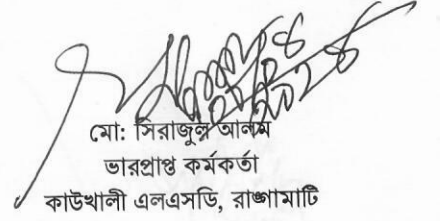 মো: সিরাজুল আলম
ভারপ্রাপ্ত কর্মকর্তা
কাউখালী এলএসডি, রাঙ্গামাটি